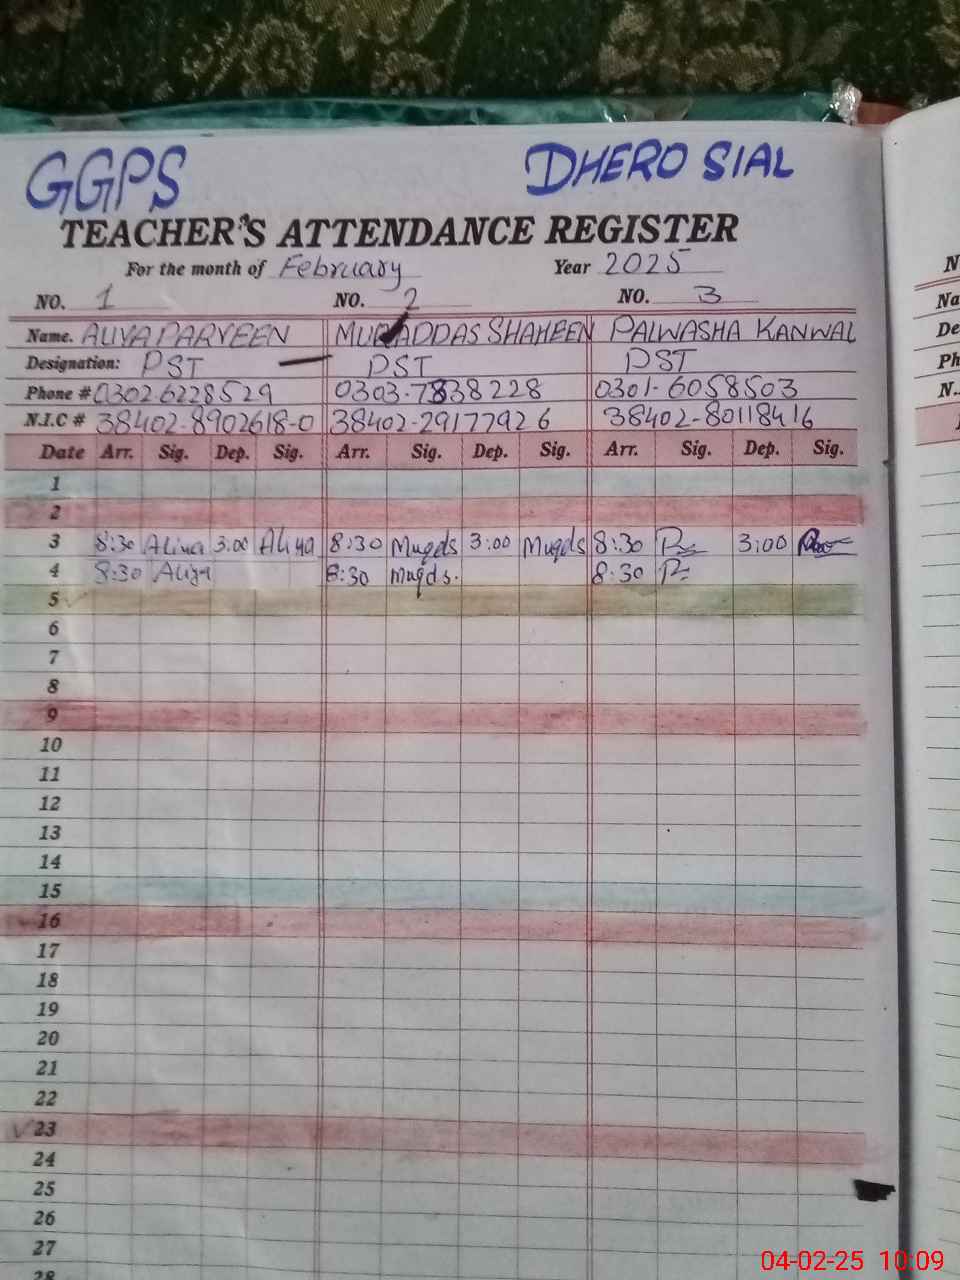 GGPS DHERO SIAL
TEACHER'S ATTENDANCE REGISTER
For the month of February Year 2025
NO. 1 NO. 2 NO. 3
Name. ALIYA PARVEEN MUQADDAS SHAHEEN PALWASHA KANWAL
Designation: PST PST PST
Phone # 0302 6228529 0303-7838228 0301-6058503
N.I.C # 38402-8902618-0 38402-29177926 38402-80118416
Date Arr. Sig. Dep. Sig. Arr. Sig. Dep. Sig. Arr. Sig. Dep. Sig.
1
2
3 8:30 Aliya 3:00 Aliya 8:30 Muqds 3:00 Muqds 8:30 3:00
4 8:30 Aliya 8:30 Muqds. 8:30
5
6
7
8
9
10
11
12
13
14
15
16
17
18
19
20
21
22
23
24
25
26
27
28
04-02-25 10:09